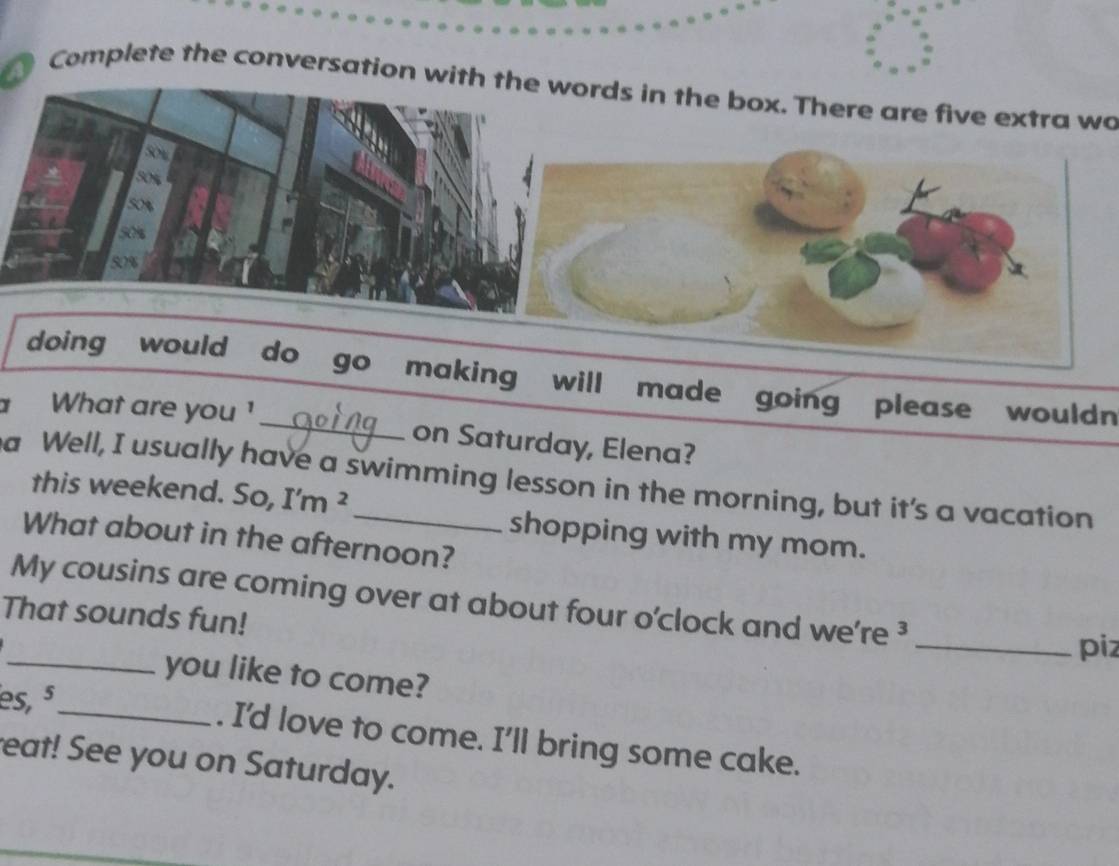 A Complete the conversation with the words in the box. There are five extra wo
50%
50%
50%
50%
50%
doing would do go making will made going please wouldn
a What are you ¹ going on Saturday, Elena?
a Well, I usually have a swimming lesson in the morning, but it's a vacation
this weekend. So, I'm ² ________ shopping with my mom.
What about in the afternoon?
My cousins are coming over at about four o'clock and we're ³ ________ piz
That sounds fun!
________ you like to come?
es, ⁵ ________. I'd love to come. I'll bring some cake.
reat! See you on Saturday.